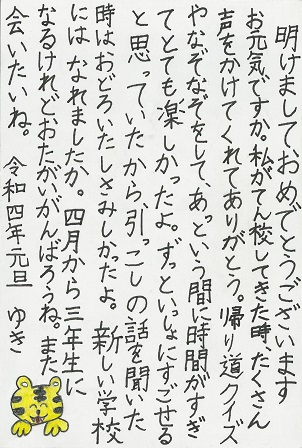 明けましておめでとうございます
お元気ですか。私がてん校してきた時、たくさん
声をかけてくれてありがとう。帰り道クイズ
やなぞなぞをして、あっという間に時間がすぎ
てとても楽しかったよ。ずっといっしょにすごせる
と思っていたから、引っこしの話を聞いた
時はおどろいたしさみしかったよ。新しい学校
にはなれましたか。四月から三年生に
なるけれどおたがいがんばろうね。また
会いたいね。 令和四年元旦 ゆき